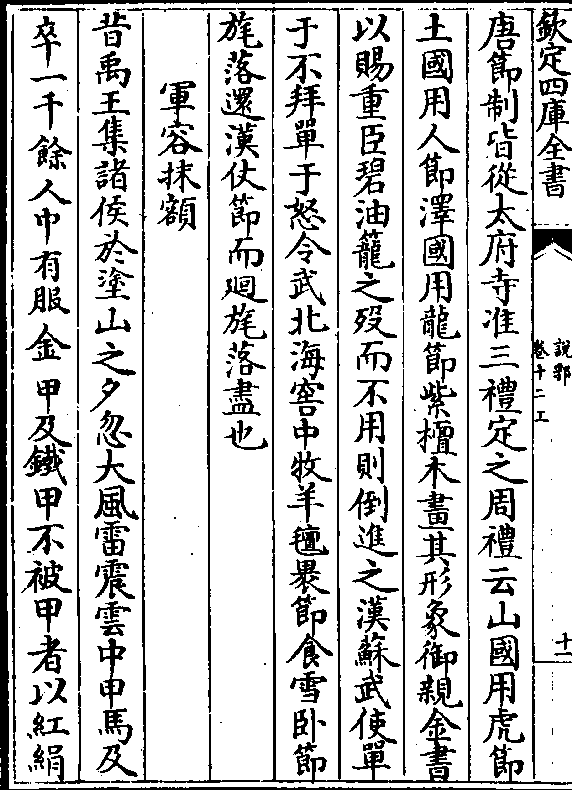 欽定四庫全書
說郛
卷十二上
十一
唐節制皆從太府寺准三禮定之周禮云山國用虎節
土國用人節澤國用龍節紫檀木畫其形象御親金書
以賜重臣碧油籠之歿而不用則倒進之漢蘇武使單
于不拜單于怒令武北海窖中牧羊氊褁節食雪卧節
旄落還漢仗節而廻旄落盡也
軍容抹額
昔禹王集諸侯於塗山之夕忽大風雷震雲中甲馬及
卒一千餘人中有服金甲及鐵甲不被甲者以紅絹